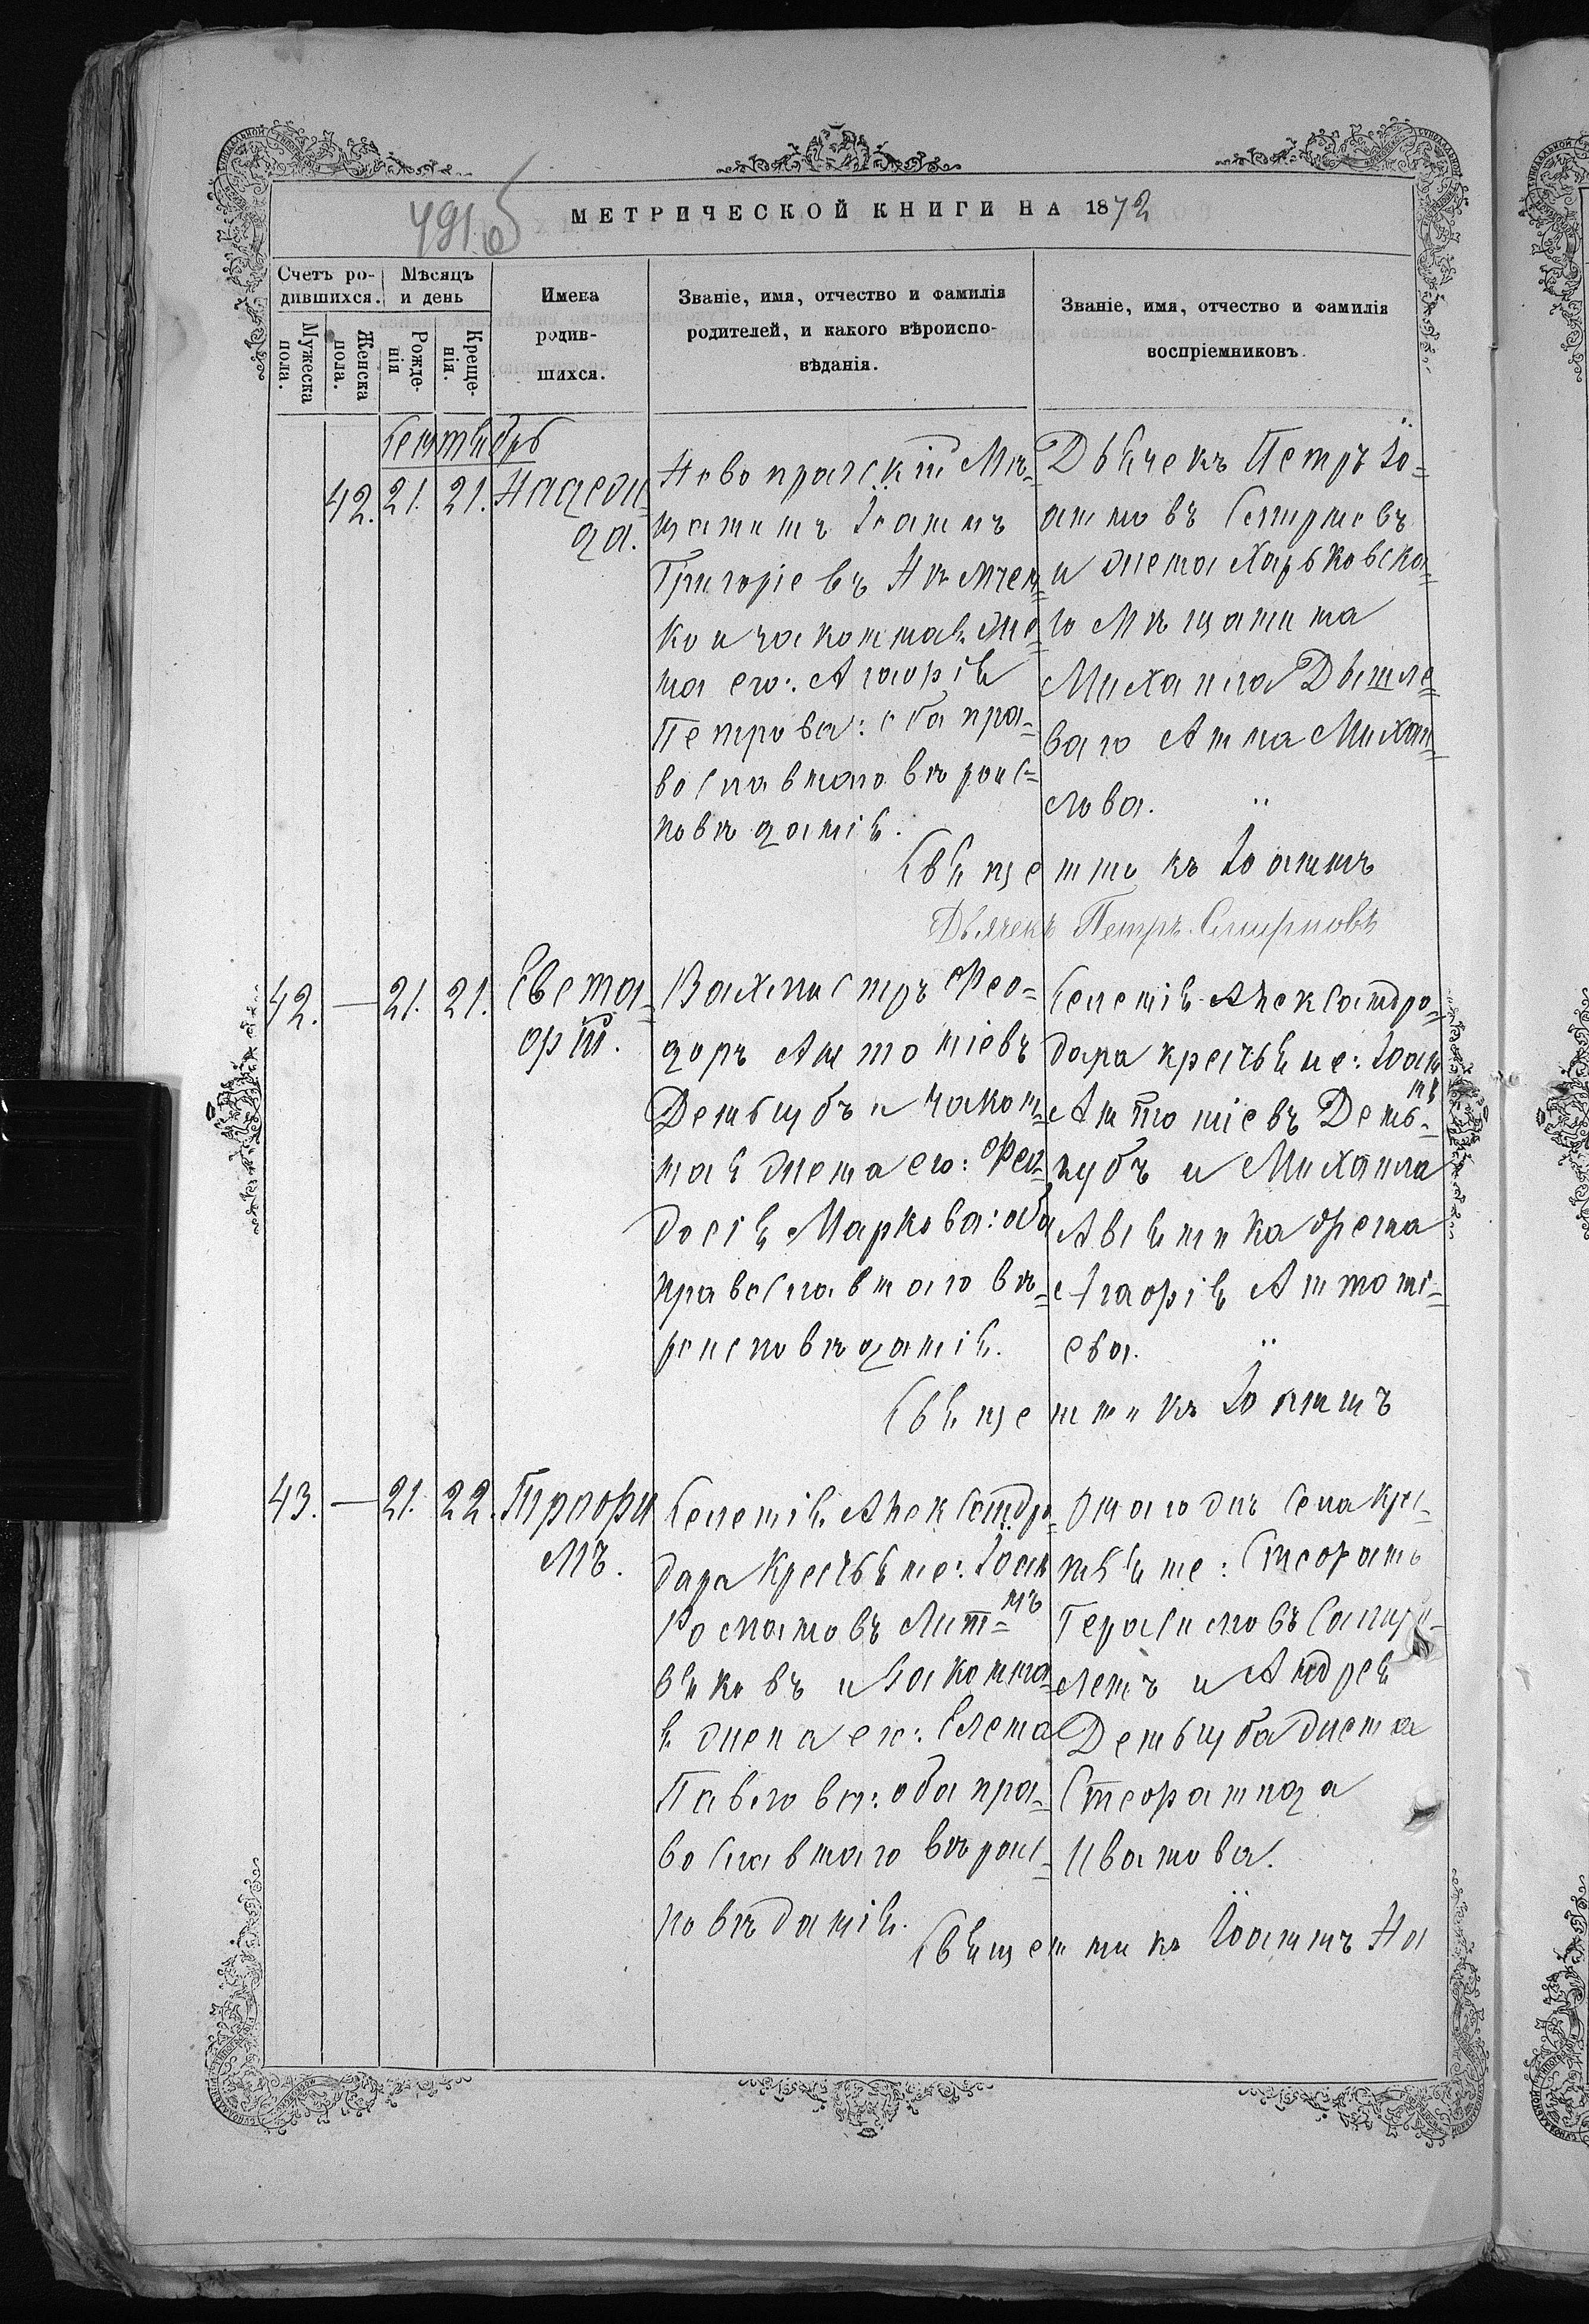 МЕТРИЧЕСКОЙ КНИГИ НА 1872
Счетъ ро-
дившихся.
Мѣсяцъ
и день
Мужеска
пола.
Женска
пола.
Рожде-
нія
Креще-
нія.
Имена
родив-
шихся.
Званіе, имя, отчество и фамилія
родителей, и какого вѣроиспо-
вѣданія.
Званіе, имя, отчество и фамилія
воспріемниковъ.
Сентябрь
42. 21. 21. Надеж-
да.
Новопражскій Мѣ-
щанинъ Іоаннъ
Григоріевъ Немчен-
ко и законная же-
на его: Агафія
Петрова: оба пра-
вославнаго вѣроис-
повѣданія.
Дьячекъ Петръ Іо-
анновъ Смирновъ
и жена Харьковска-
го Мѣщанина
Михаила
ваго Анна Михаи-
лова.
Священникъ Іоаннъ
Дьячекъ Петръ Смирновъ
42. — 21. 21. Евста-
фій.
Вахмистръ Фео-
доръ Антоніевъ
Демьщбъ и закон-
ная жена его: Фео-
досія Маркова: оба
православнаго вѣ-
роисповѣданія.
Селенія Александро-
дара крестьяне: Іоан-
нъ
Антоніевъ Демь-
щубъ и Михаила
жена
Агафія Антоні-
ева.
Священникъ Іоаннъ
43. — 21. 22. Трофи
мъ.
Селенія Александро-
дара Крестьяне: Іоан
нъ
Романовъ Лит-
вяковъ и законна-
я жена его: Елена
Павлова: оба пра-
вославнаго вѣроис-
повѣданія.
Онаго жъ Села кре-
стьяне: Стефанъ
Герасимовъ
и Андрея
жена
Стефанида
Иванова.
Священникъ Іоаннъ На